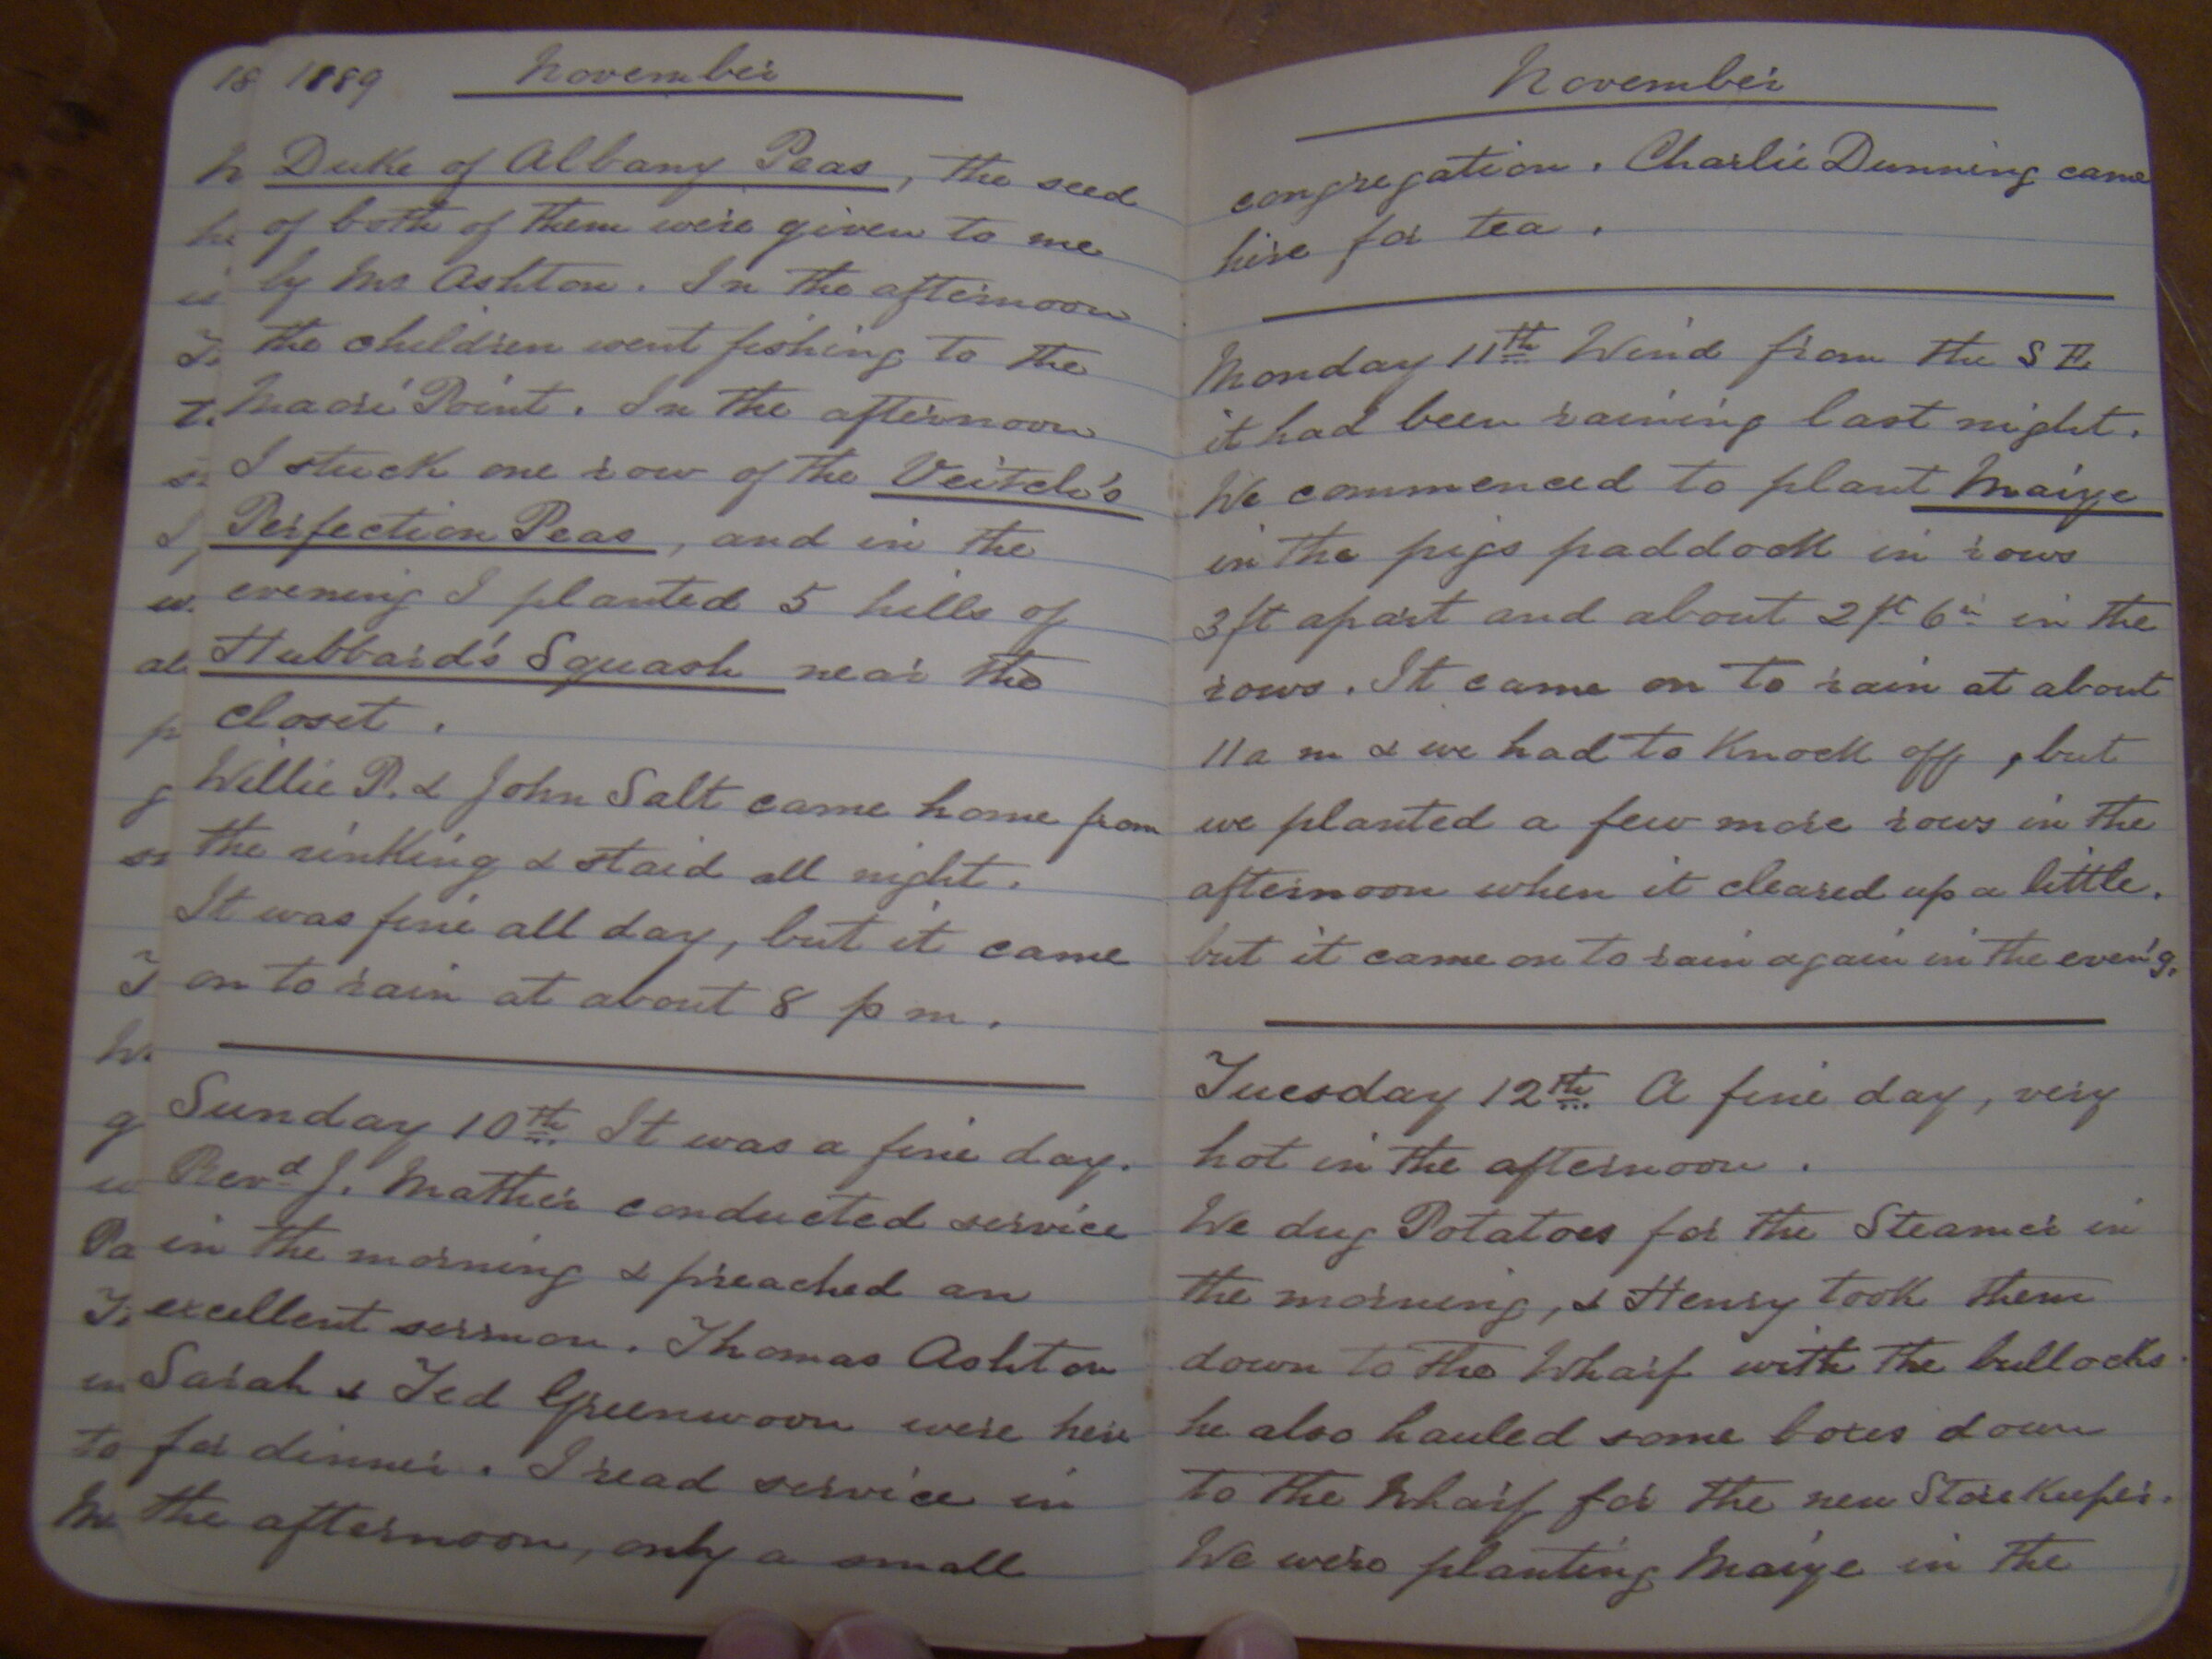 1889 November
Duke of Albany Peas, the seed
of both of them were given to me
by Mr Ashton. In the afternoon
the children went fishing to the
Maori Point. In the afternoon
I stuck one row of the Veitch's
Perfection Peas, and in the
evening I planted 5 hills of
Hubbard's Squash near the
closet.
Willie P. & John Salt came home from
the rinking & staid all night.
It was fine all day, but it came
on to rain at about 8 p m.
Sunday 10th It was a fine day.
Revd J. Mather conducted service
in the morning & preached an
excellent sermon. Thomas Ashton
Sarah & Ted Greenwoon were here
for dinner. I read service in
the afternoon, only a small
November
congregation. Charlie Dunning came
here for tea.
Monday 11th Wind from the S E
it had been raining last night.
We commenced to plant Maize
in the pigs paddock in rows
3ft apart and about 2ft 6in in the
rows. It came on to rain at about
11 a m & we had to knock off, but
we planted a few more rows in the
afternoon when it cleared up a little.
but it came on to rain again in the even'g.
Tuesday 12th A fine day, very
hot in the afternoon.
We dug Potatoes for the Steamer in
the morning, & Henry took them
down to the Wharf with the bullocks.
he also hauled some boxes down
to the Wharf for the new Storekeeper.
We were planting Maize in the